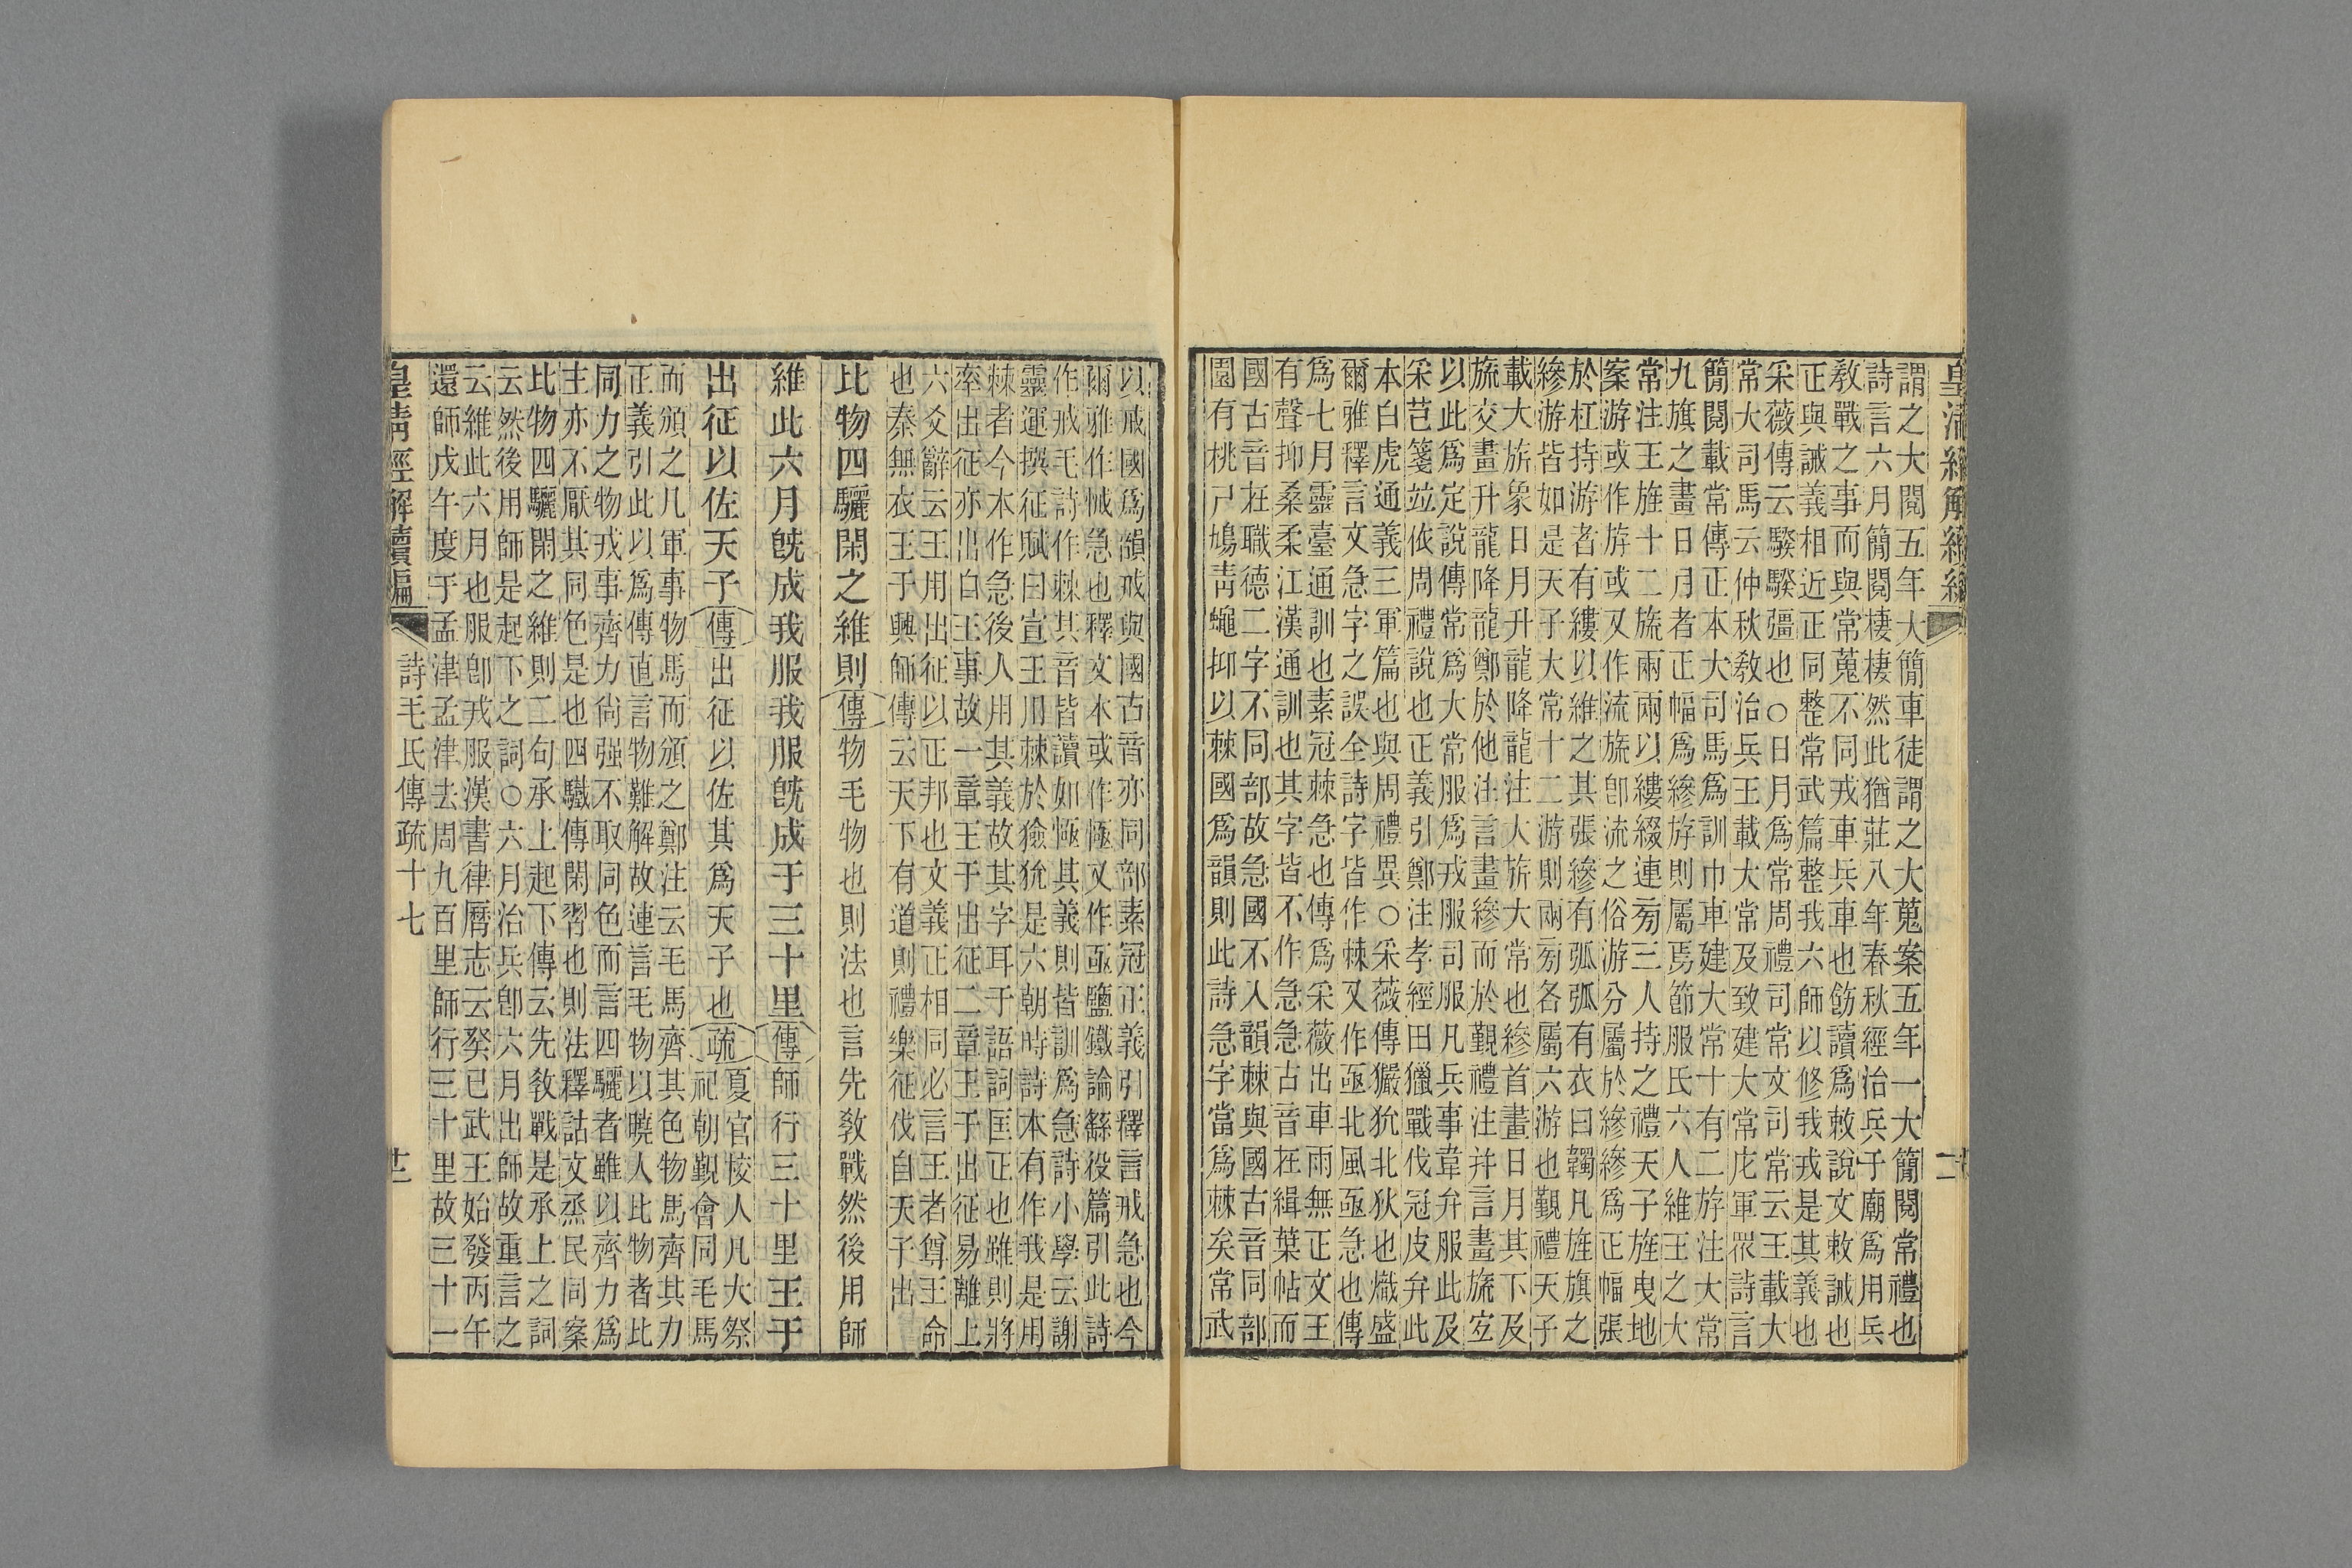 謂之大閱五年大簡車徒謂之大蒐案五年一大簡閱常禮也
詩言六月簡閱棲棲然此猶莊八年春秋經治兵于廟爲用兵
敎戰之事而與常蒐不同戎車兵車也飭讀爲敕說文敕誡也
正與誡義相近正同整常武篇整我六師以修我戎是其義也
采薇傳云騤騤彊也○日月爲常周禮司常文司常云王載大
常大司馬云仲秋敎治兵王載大常及致建大常庀軍眾詩言
簡閱載常傳正本大司馬爲訓巾車建大常十有二斿注大常
九旗之畫日月者正幅爲縿斿則屬焉節服氏六人維王之大
常注王旌十二旒兩兩以縷綴連旁三人持之禮天子旌曳地
案游或作斿或又作流旒卽流之俗游分屬於縿縿爲正幅張
於杠持游者有縷以維之其張縿有弧弧有衣曰韣凡旌旗之
縿游皆如是天子大常十二游則兩旁各屬六游也覲禮天子
載大旂象日月升龍降龍注大旂大常也縿首畫日月其下及
旒交畫升龍降龍鄭於他注言畫縿而於覲禮注幷言畫旒宐
以此爲定說傳常爲大常服爲戎服司服凡兵事韋弁服此及
采芑箋竝依周禮說也正義引鄭注孝經田獵戰伐冠皮弁此
本白虎通義三軍篇也與周禮異○采薇傳玁狁北狄也熾盛
爾雅釋言文急字之誤全詩字皆作棘又作亟北風亟急也傳
爲七月靈臺通訓也素冠棘急也傳爲采薇出車雨無正文王
有聲抑桑柔江漢通訓也其字皆不作急急古音在緝葉帖而
國古音在職德二字不同部故急國不入韻棘與國古音同部
園有桃尸鳩靑蠅抑以棘國爲韻則此詩急字當爲棘矣常武
以戒國爲韻戒與國古音亦同部素冠正義引釋言戒急也今
爾雅作悈急也釋文本或作極又作亟鹽鐵論繇役篇引此詩
作戒毛詩作棘其音皆讀如極其義則皆訓爲急詩小學云謝
靈運撰征賦曰宣王用棘於獫狁是六朝時詩本有作我是用
棘者今本作急後人用其義故其字耳于語詞匡正也雖則將
率出征亦出自王事故一章王于出征二章王于出征易離上
六爻辭云王用出征以正邦也文義正相同必言王者尊王命
也秦無衣王于興師傳云天下有道則禮樂征伐自天子出
比物四驪閑之維則傳物毛物也則法也言先敎戰然後用師
維此六月旣成我服我服旣成于三十里傳師行三十里王于
出征以佐天子傳出征以佐其爲天子也疏夏官校人凡大祭
祀朝覲會同毛馬
而頒之凡軍事物馬而頒之鄭注云毛馬齊其色物馬齊其力
正義引此以爲傳直言物難解故連言毛物以曉人比物者比
同力之物戎事齊力尙强不取同色而言四驪者雖以齊力爲
主亦不厭其同色是也四驖傳閑習也則法釋詁文烝民同案
比物四驪閑之維則二句承上起下傳云先敎戰是承上之詞
云然後用師是起下之詞○六月治兵卽六月出師故重言之
云維此六月也服卽戎服漢書律曆志云癸巳武王始發丙午
還師戊午度于孟津孟津去周九百里師行三十里故三十一
皇淸經解續編 詩毛氏傳疏十七